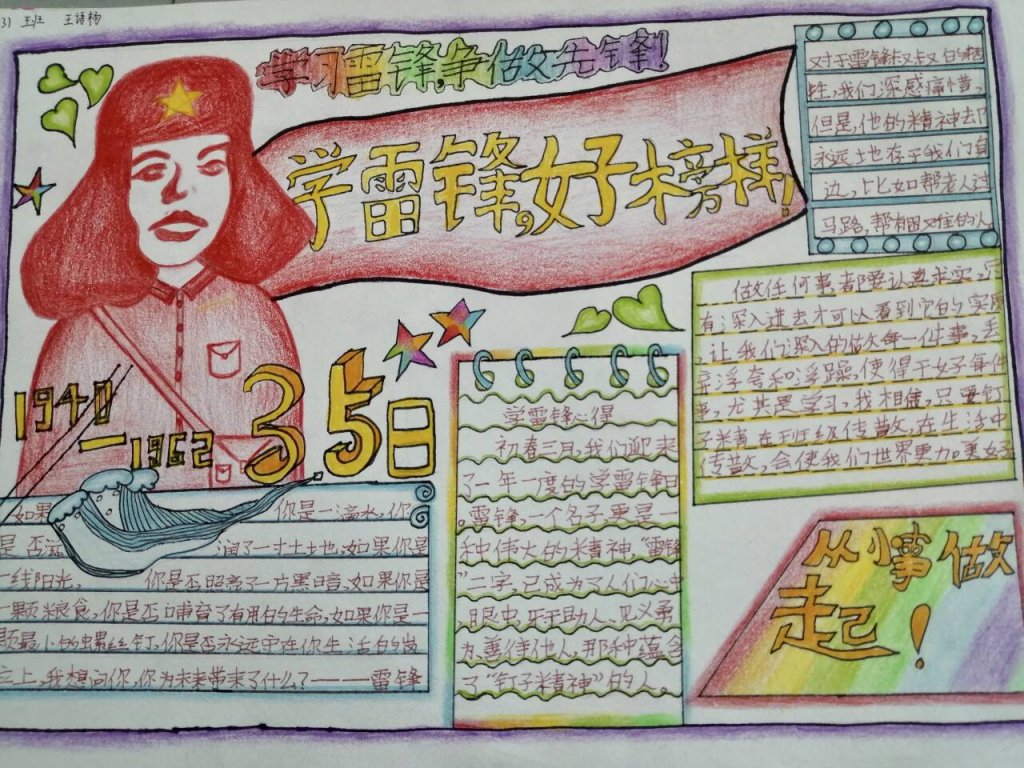 3) 王红 王诗杨
学习雷锋,争做先锋!
学雷锋,好榜样!
对于雷锋叔叔的牺
牲,我们深感痛惜,
但是,他的精神去
永远地存于我们身
边,比如帮老人过
马路,帮有困难的人
做任何事都要认真求实,
有深入进去才可以看到它的实质
,让我们深入的做好每一件事,丢
弃浮夸和浮躁,使得干好每件
事,尤其是学习,我相信,只要钉
子精在班级传散,在生活中
传散,会使我们世界更加美好
1940
—1962
3 5日
学雷锋心得
初春三月,我们迎来
了一年一度的学雷锋日
。雷锋,一个名字更是一
种伟大的精神,“雷锋
”二字,已成为了人们心中
眼中,乐于助人、见义勇
为、善待他人,那种蕴含
了“钉子精神”的人。
如果 你是一滴水,你
是否滋 润了一寸土地;如果你是
一线阳光, 你是否照亮了一方黑暗,如果你是
一颗粮食,你是否哺育了有用的生命,如果你是一
颗最小的螺丝钉,你是否永远守在你生活的岗
位上,我想问你,你为未来带来了什么?———雷锋
从小事做
起!